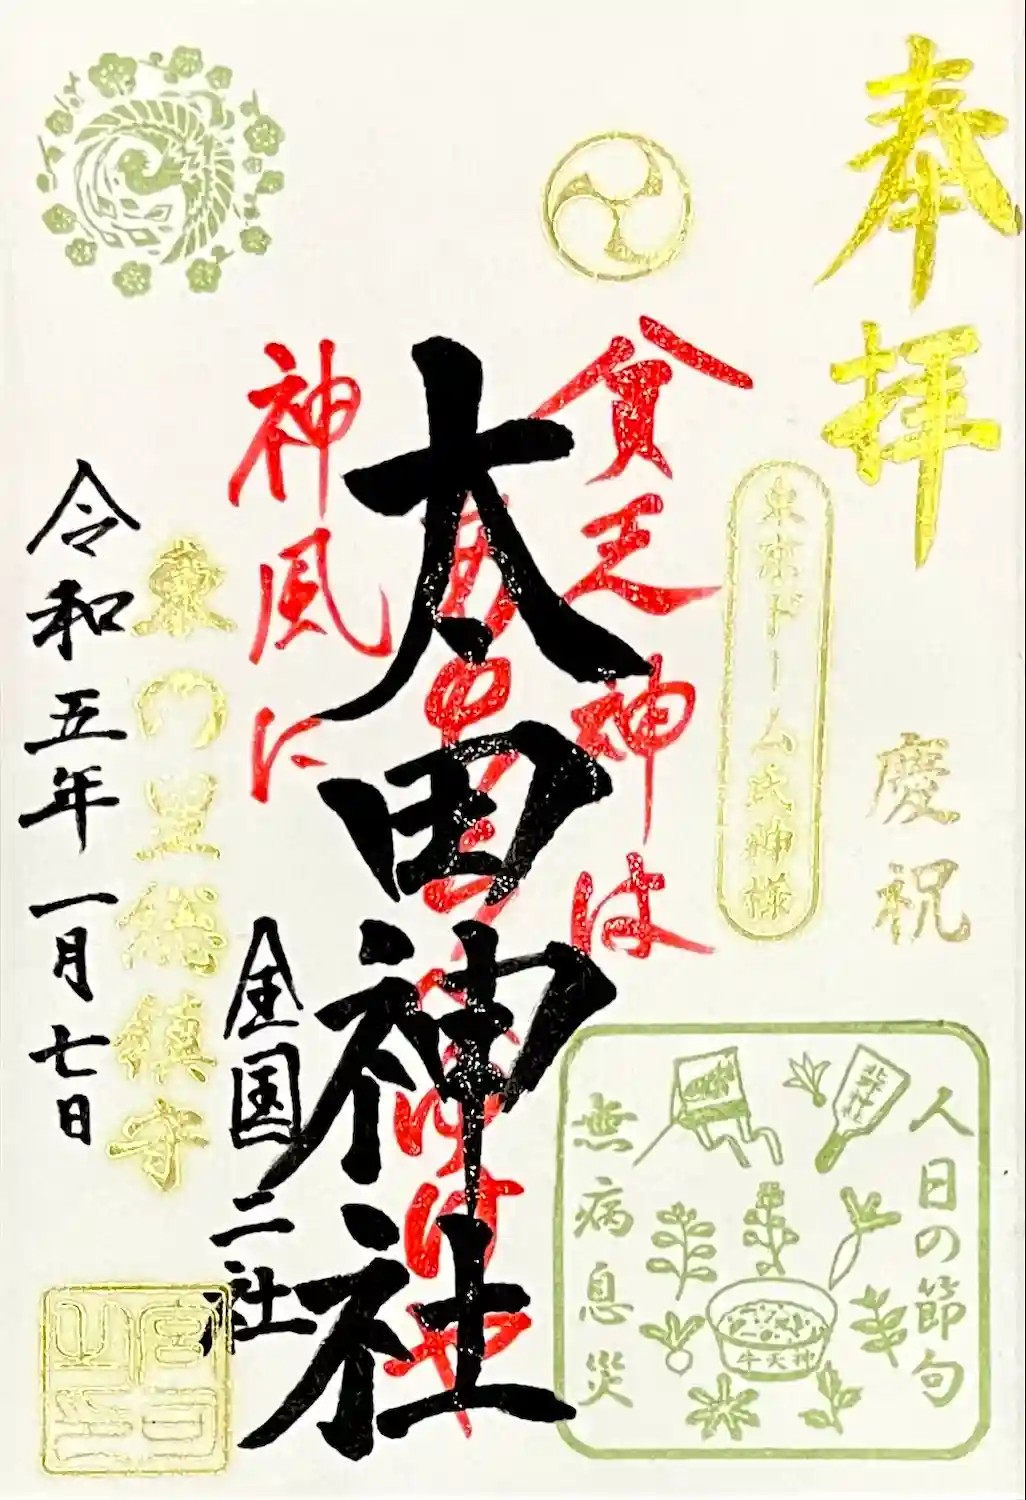 奉拝
慶祝
東京ドーム氏神様
貧乏神は
太田神社
神風に
全国二社
総鎮守
令和五年一月七日
人日の節句
北野神社
牛天神
無病息災
宮司之印